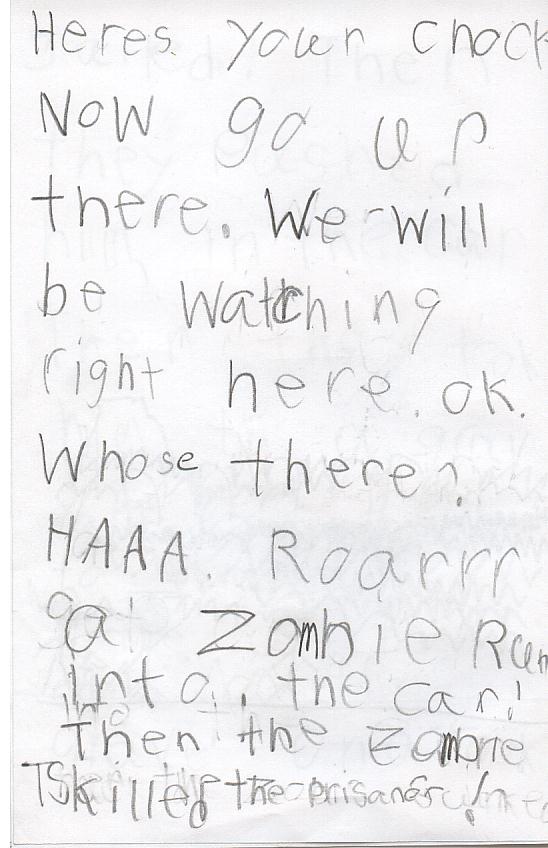 Heres your chock
Now go up
there. We will
be watching
right here. ok.
Whose there?
HAAA. Roarrr
a Zombie Run
into. the car!
Then the Zombie
killed the prisaners!